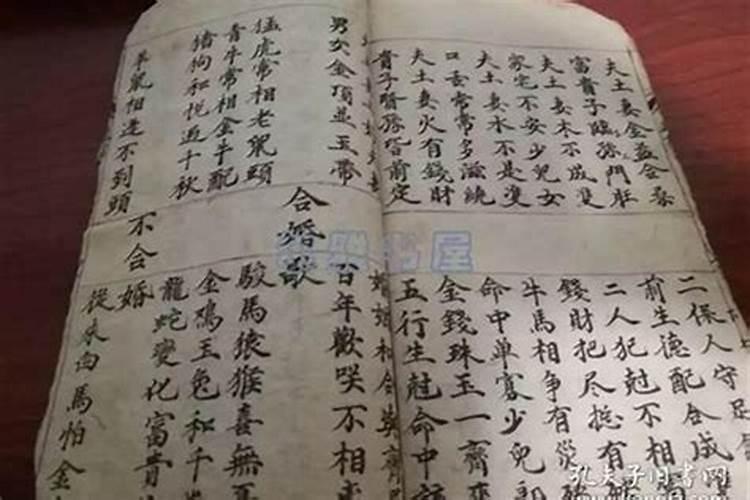 夫土妻金益合
富貴子臨孫門庄
夫土妻木不成雙
家宅不安少兒女
夫土妻水不是雙
口舌常常多滋繞
夫土妻火有錢財
貴子賢孫皆前定
二保人守足
前生德配合成
二人犯尅不相
錢財把尽挺有
牛馬相争有災
命中单寡少兒郎
金錢珠玉一齊來
五行生尅命中該
婚姻和合
男女金頂並玉帶
合婚歌
猛虎常相老鼠頭
青牛常相金牛配
猪狗和悦過千秋
不合婚
羊鼠相逢不到頭
百年歡咲不相
駿馬猿猴喜無
金鴻玉兔和千
龍蛇變化富貴
從来白馬怕金
孔夫子旧书网